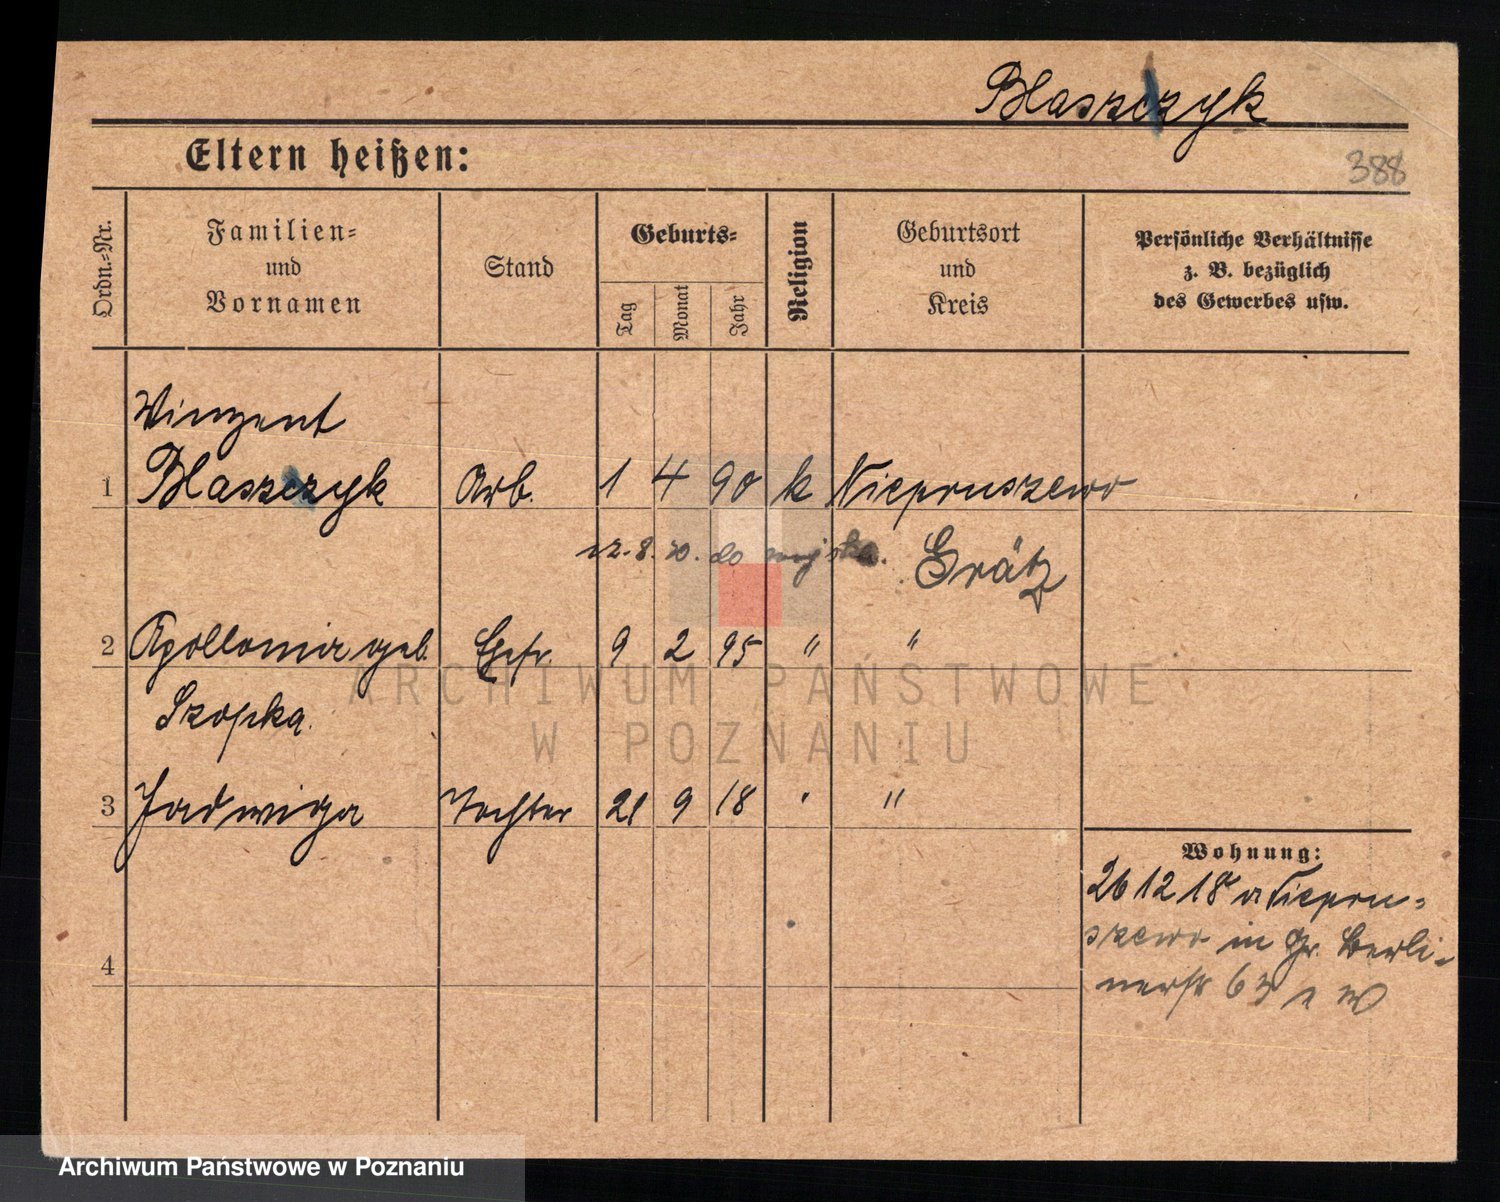 Blaszczyk
Eltern heißen:
388
Ordn.-Nr.
Familien-
und
Vornamen
Stand
Geburts-
Tag
Monat
Jahr
Religion
Geburtsort
und
Kreis
Persönliche Verhältnisse
z. B. bezüglich
des Gewerbes usw.
Winzent
1 Blaszczyk Arb. 1 4 90 k Niepruszewo
12.8.20. do wojska. Grätz
2 Apollonia geb. Ehefr. 9 2 95 " "
Szopka.
3 Jadwiga Tochter 21 9 18 " "
Wohnung:
26 12 18 a Niepru-
szewo in Gr. Berli-
nerstr 63
4
ARCHIWUM PAŃSTWOWE
W POZNANIU
Archiwum Państwowe w Poznaniu